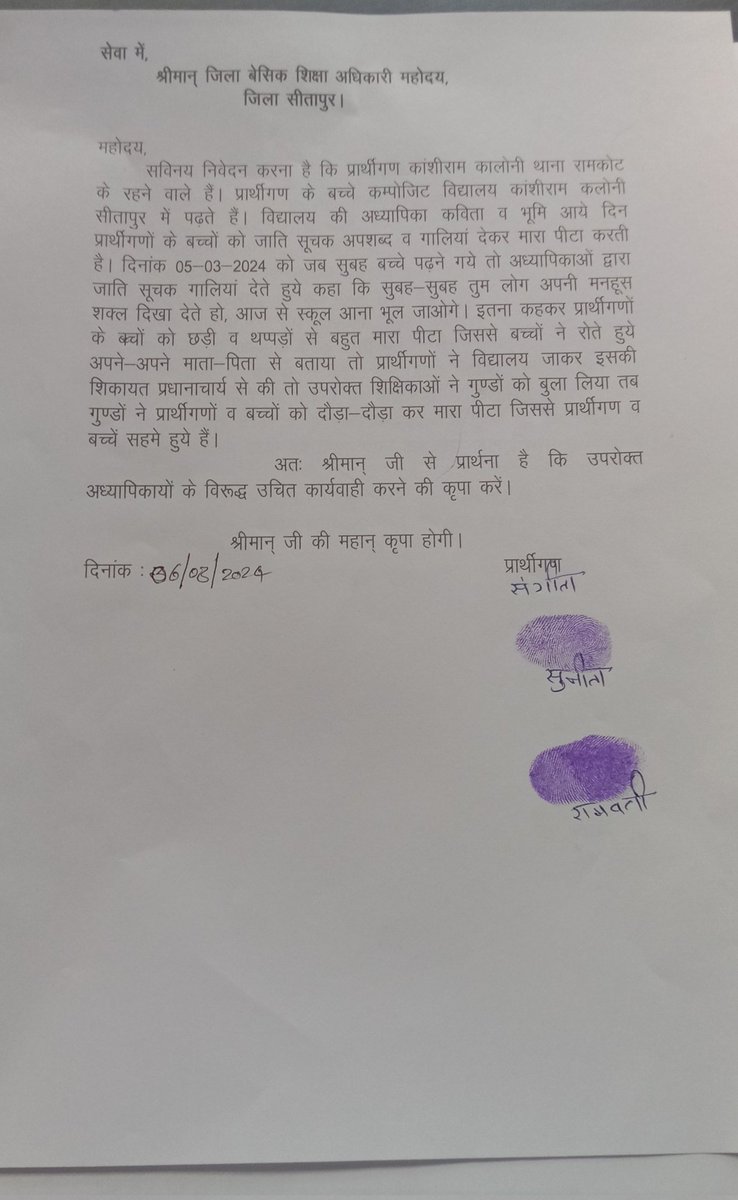 सेवा में,
श्रीमान् जिला बेसिक शिक्षा अधिकारी महोदय,
जिला सीतापुर।
महोदय,
सविनय निवेदन करना है कि प्रार्थीगण कांशीराम कालोनी थाना रामकोट
के रहने वाले हैं। प्रार्थीगण के बच्चे कम्पोजिट विद्यालय कांशीराम कलोनी
सीतापुर में पढ़ते हैं। विद्यालय की अध्यापिका कविता व भूमि आये दिन
प्रार्थीगणों के बच्चों को जाति सूचक अपशब्द व गालियां देकर मारा पीटा करती
है। दिनांक 05-03-2024 को जब सुबह बच्चे पढ़ने गये तो अध्यापिकाओं द्वारा
जाति सूचक गालियां देते हुये कहा कि सुबह-सुबह तुम लोग अपनी मनहूस
शक्ल दिखा देते हो, आज से स्कूल आना भूल जाओगे। इतना कहकर प्रार्थीगणों
के बच्चों को छड़ी व थप्पड़ों से बहुत मारा पीटा जिससे बच्चों ने रोते हुये
अपने-अपने माता-पिता से बताया तो प्रार्थीगणों ने विद्यालय जाकर इसकी
शिकायत प्रधानाचार्य से की तो उपरोक्त शिक्षिकाओं ने गुण्डों को बुला लिया तब
गुण्डों ने प्रार्थीगणों व बच्चों को दौड़ा-दौड़ा कर मारा पीटा जिससे प्रार्थीगण व
बच्चें सहमे हुये हैं।
अतः श्रीमान् जी से प्रार्थना है कि उपरोक्त
अध्यापिकायों के विरूद्ध उचित कार्यवाही करने की कृपा करें।
श्रीमान् जी की महान् कृपा होगी।
दिनांक : 06/03/2024
प्रार्थीगण
संगीता
सुनीता
रामवती